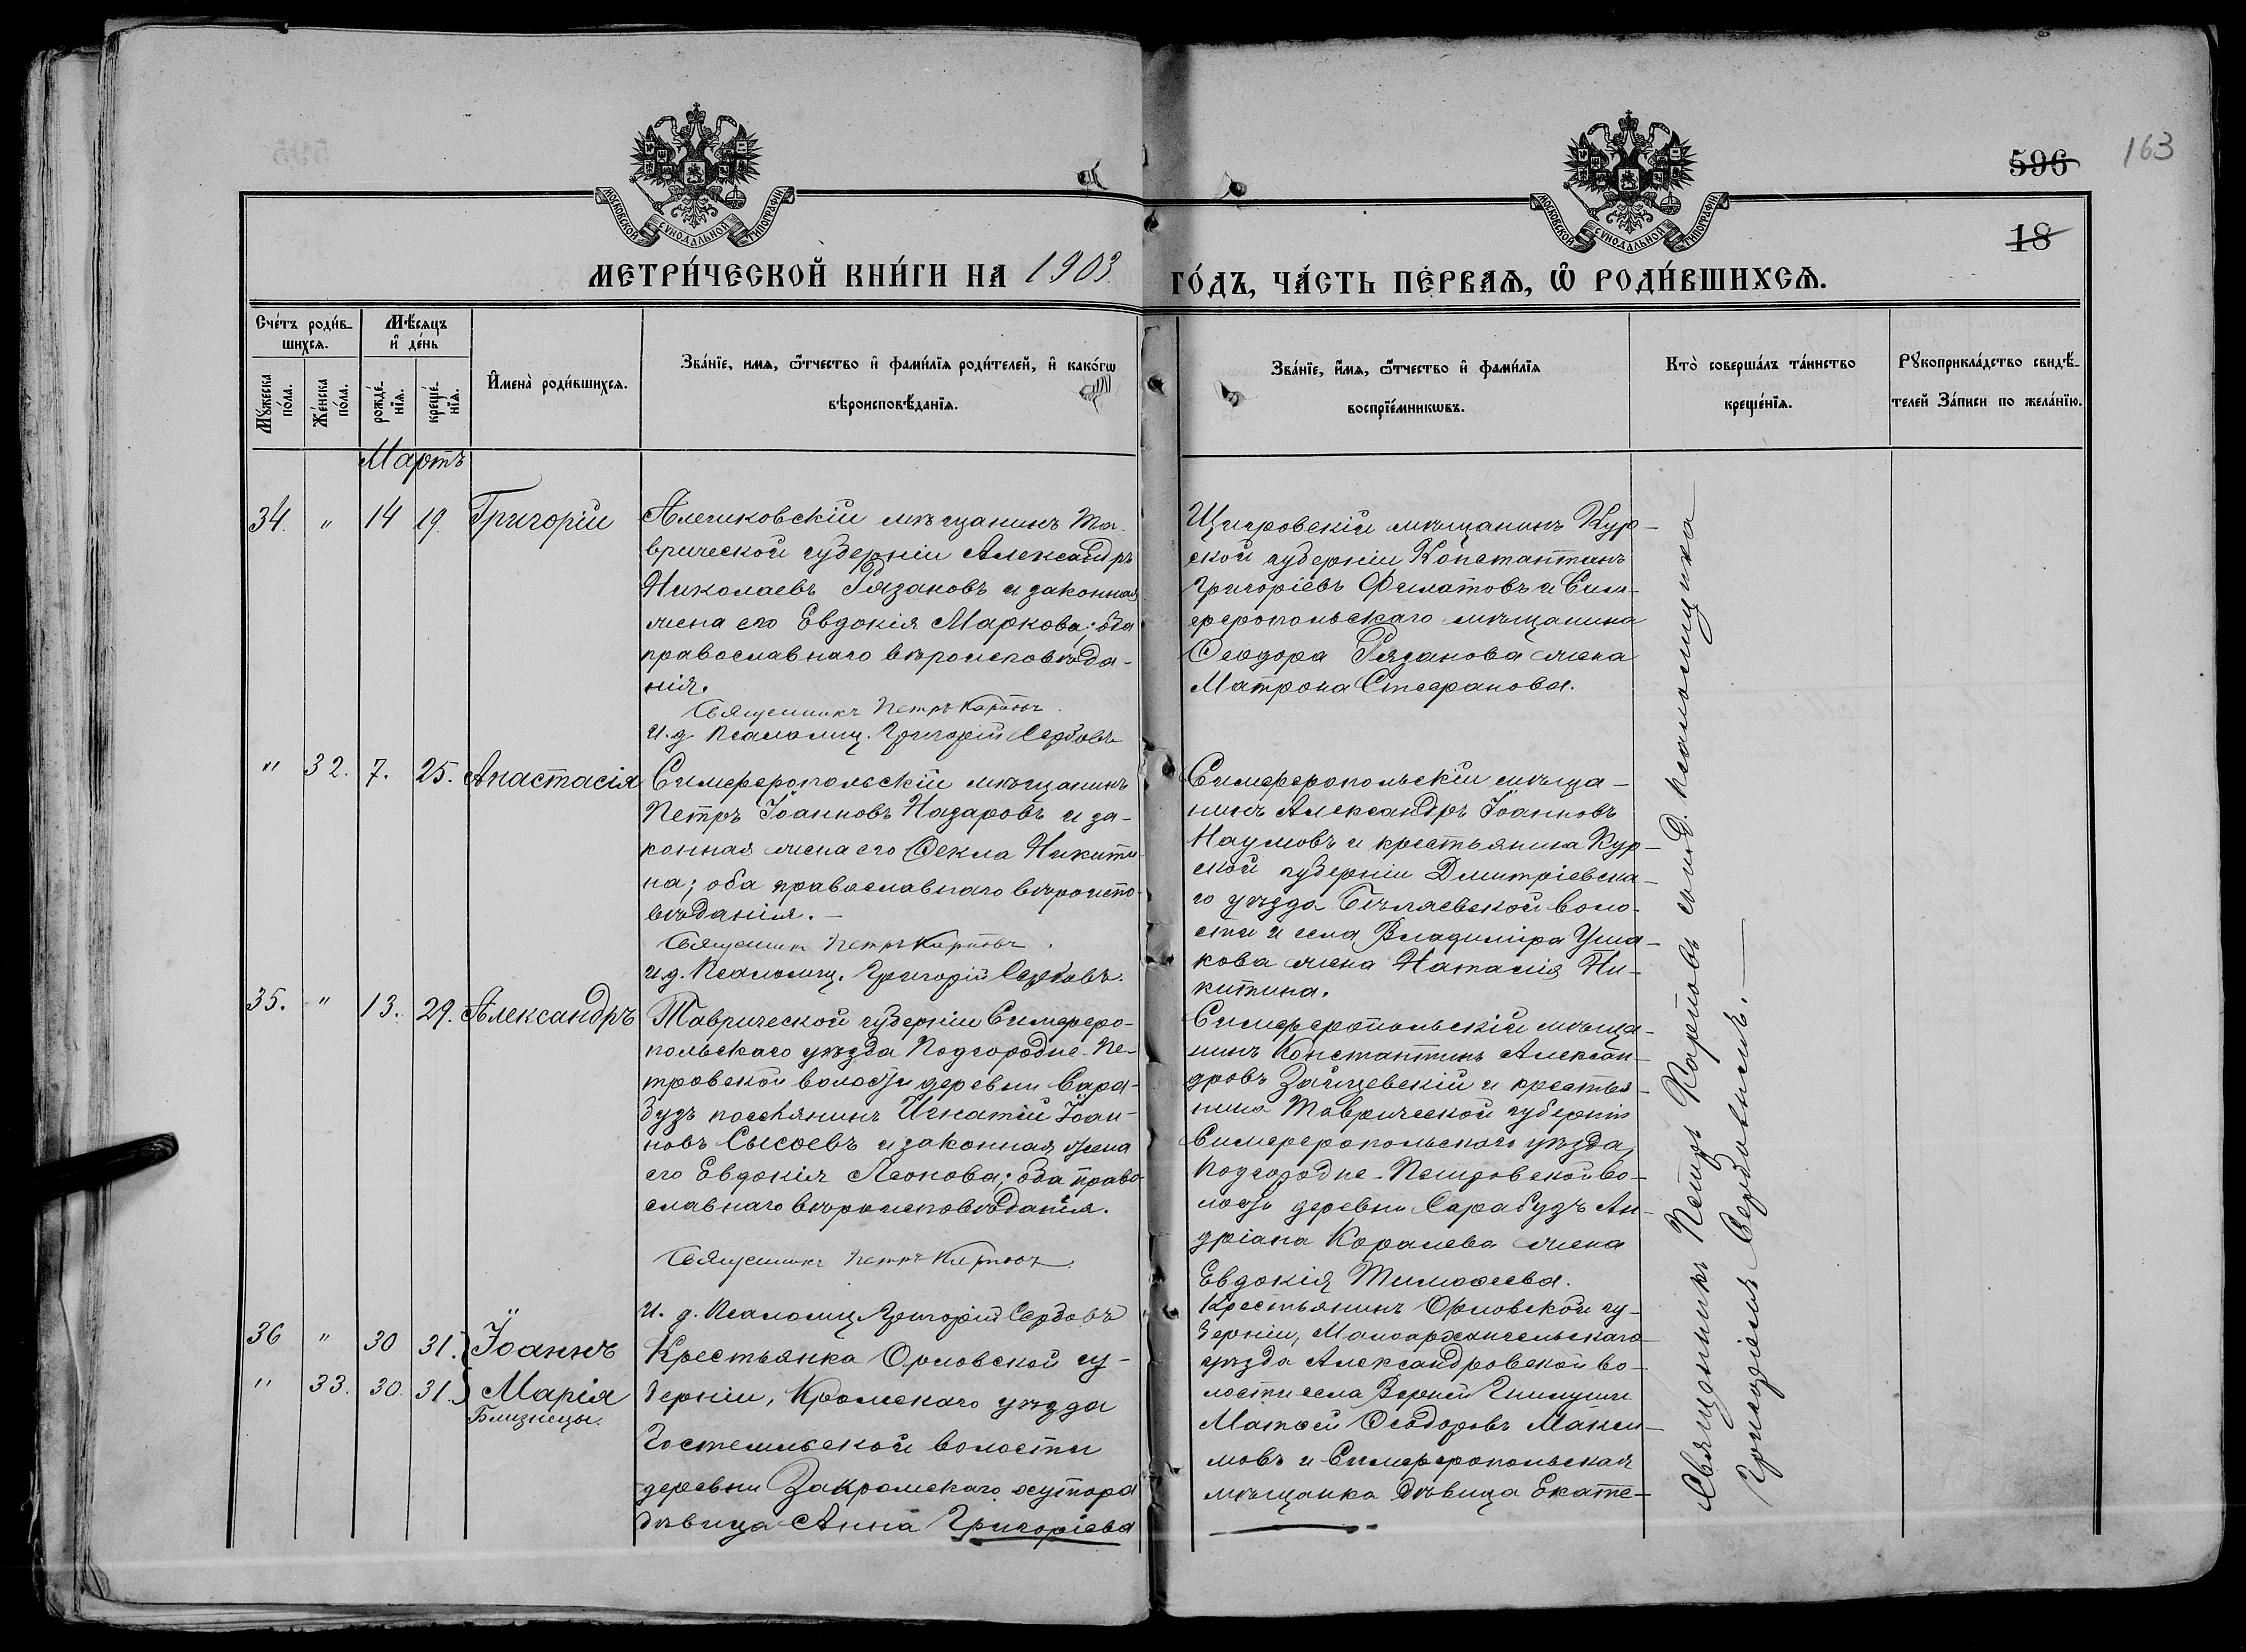 596
163
18
МОСКОВСКОЙ СѴНОДАЛЬНОЙ ТИПОГРАФІИ
МОСКОВСКОЙ СѴНОДАЛЬНОЙ ТИПОГРАФІИ
МЕТРИ́ЧЕСКОЙ КНИ́ГИ НА 1903
ГО́ДЪ, ЧА́СТЬ ПЕ́РВАѦ, Ѽ РОДИ́ВШИХСѦ.
Сче́тъ роди́в-
шихсѧ.
Мѣ́сѧцъ
и҆ де́нь
Мꙋ́жеска
по́ла.
Же́нска
по́ла.
рожде́-
нїѧ.
креще́-
нїѧ.
И҆мена̀ роди́вшихсѧ.
Зва́нїе, имѧ, ѻ҆́тчество и҆ фами́лїѧ роди́телей, и҆ како́гѡ
вѣроисповѣ́данїѧ.
Зва́нїе, и҆́мѧ, ѻ҆́тчество и҆ фами́лїѧ
воспрїе́мникѡвъ.
Кто̀ соверша́лъ та́инство
креще́нїѧ.
Рꙋкоприкла́дство свидѣ́-
телей За́писи по жела́нїю.
Мартъ
34. " 14 19. Григорій
Алешковскій мѣщанинъ Та-
врической губерніи Александръ
Николаевъ Рязановъ и законная
жена его Евдокія Маркова; оба
православнаго вѣроисповѣда-
нія.
Священникъ Петръ Карповъ.
И. д. Псаломщ. Григорій Сербовъ
Щигровскій мѣщанинъ Кур-
ской губерніи Константинъ
Григоріевъ Филатовъ и Сим-
феропольскаго мѣщанина
Ѳеодора Рязанова жена
Матрона Стефанова.
" 32. 7. 25. Анастасія
Симферопольскій мѣщанинъ
Петръ Іоанновъ Назаровъ и за-
конная жена его Ѳекла Никити-
на; оба православнаго вѣроиспо-
вѣданія.-
Священникъ Петръ Карповъ.
И. д. Псаломщ. Григорій Сербовъ.
Симферопольскій мѣща-
нинъ Александръ Іоанновъ
Наумовъ и крестьянина Кур-
ской губерніи Дмитріевска-
го уѣзда Бѣляевской воло-
сти и села Владиміра Уша-
кова жена Наталія Ни-
китина.
35. " 13. 29. Александръ
Таврической губерніи Симферо-
польскаго уѣзда Подгородне-Пе-
тровской волости деревни Сара-
бузъ поселянинъ Игнатій Іоан-
новъ Сысоевъ и законная жена
его Евдокія Леонова; оба право-
славнаго вѣроисповѣданія.
Священникъ Петръ Карповъ.
И. д. Псаломщ. Григорій Сербовъ
Симферопольскій мѣща-
нинъ Константинъ Алексан-
дровъ Зайцевскій и крестья-
нина Таврической губерніи
Симферопольскаго уѣзда,
Подгородне-Петровской во-
лости деревни Сарабузъ Ан-
дріана Королева жена
Евдокія Тимоѳеева.
36 " 30 31. Іоаннъ
" 33. 30. 31. Марія
Близнецы.
Крестьянка Орловской гу-
берніи, Кромскаго уѣзда
Гостемльской волости
деревни Закромскаго хутора
дѣвица Анна Григоріева
Крестьянинъ Орловской гу-
берніи, Малоархангельскаго
уѣзда Александровской во-
лости села Верхней
Матѳей Ѳеодоровъ Макси-
мовъ и Симферопольская
мѣщанка дѣвица Екате-
Священникъ Петръ Карповъ съ и. д. псаломщика
Григоріемъ Сербовымъ.